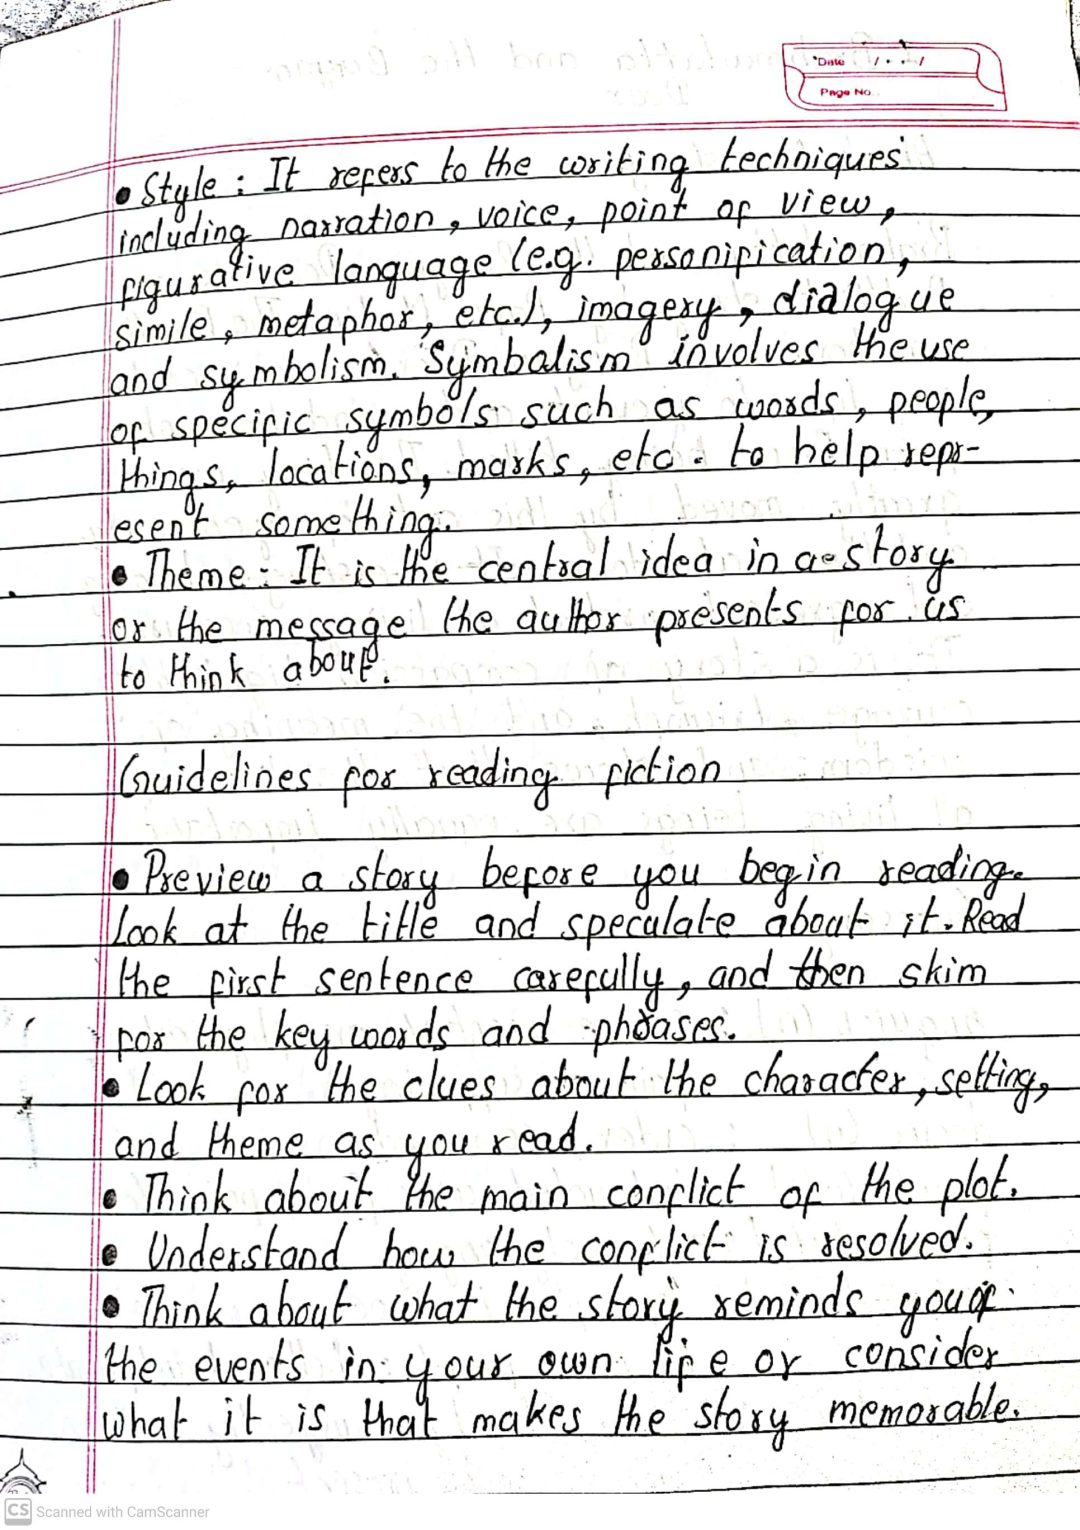 Date / /
Page No.
• Style : It refers to the writing techniques
including narration, voice, point of view,
figurative language (e.g. personification,
simile, metaphor, etc.), imagery, dialogue
and symbolism. Symbalism involves the use
of specific symbols such as words, people,
things, locations, marks, etc. to help repr-
esent something.
• Theme : It is the central idea in a story
or the message the author presents for us
to think about.
Guidelines for reading fiction
• Preview a story before you begin reading.
Look at the title and speculate about it. Read
the first sentence carefully, and then skim
for the key words and phrases.
• Look for the clues about the character, setting,
and theme as you read.
• Think about the main conflict of the plot.
• Understand how the conflict is resolved.
• Think about what the story reminds you of
the events in your own life or consider
what it is that makes the story memorable.
CS Scanned with CamScanner